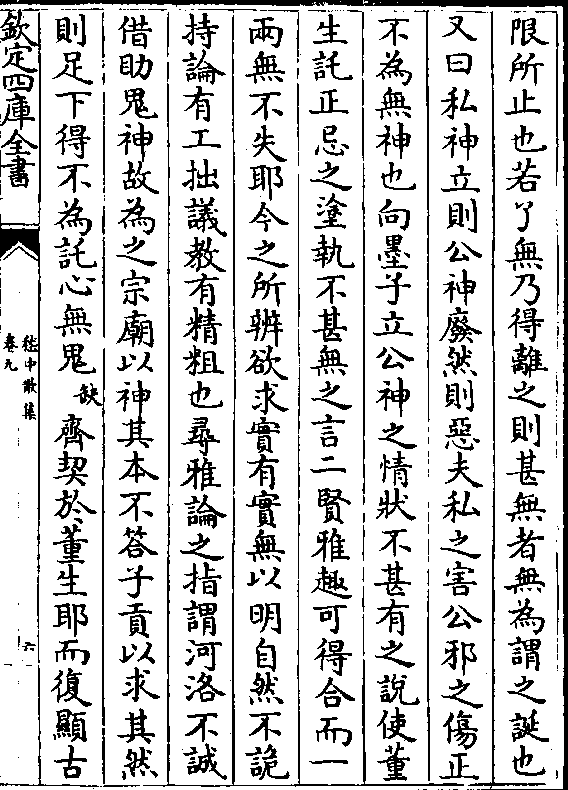 限所止也若了無乃得離之則甚無者無為謂之誕也
又曰私神立則公神廢然則惡夫私之害公邪之傷正
不為無神也向墨子立公神之情狀不甚有之說使董
生託正忌之塗執不甚無之言二賢雅趣可得合而一
兩無不失耶今之所辨欲求實有實無以明自然不詭
持論有工拙議教有精粗也尋雅論之指謂河洛不誠
借助鬼神故為之宗廟以神其本不答子貢以求其然
則足下得不為託心無鬼缺齊契於董生耶而復顯古
欽定四庫全書
嵇中散集
卷九
六